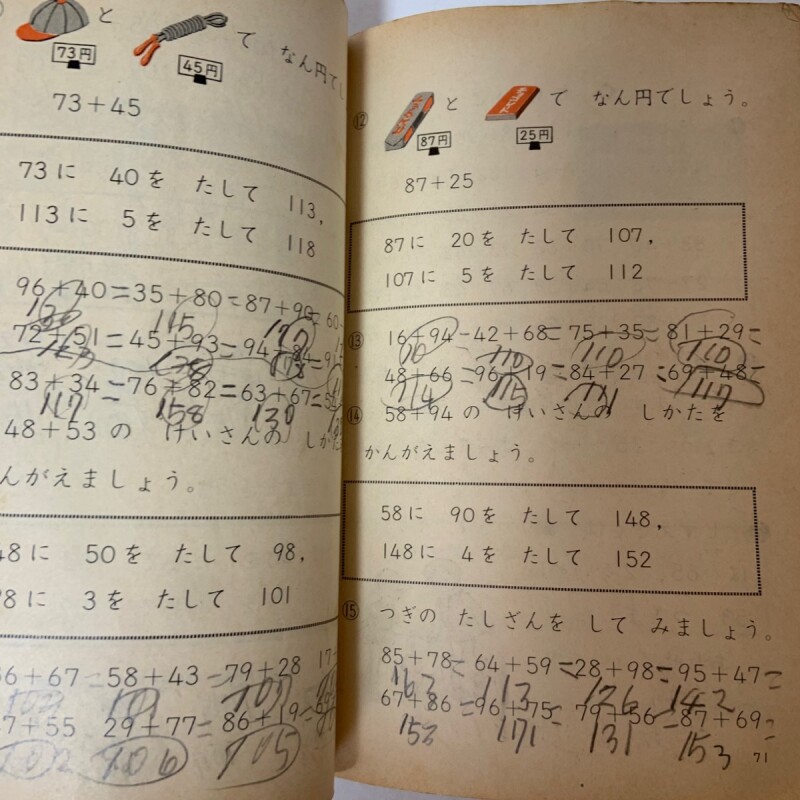 と で なん円でし
73円
45円
73+45
73に 40を たして 113,
113に 5を たして 118
96+40= 35+80= 87+90= 60
115
72+51= 45+93= 94+84= 91+
138
83+34= 76+82= 63+67=
117 158 130
48+53の けいさんの しかた
んがえましょう。
48に 50を たして 98,
98に 3を たして 101
36+67= 58+43= 79+28 17
101 107
47+55 29+77= 86+19=
102 106 105
⑫ と で なん円でしょう。
ビスケット
87円
25円
87+25
87に 20を たして 107,
107に 5を たして 112
⑬ 16+94= 42+68= 75+35= 81+29=
110 110 110
48+66= 96+19= 84+27= 69+48=
114 115 111 117
⑭ 58+94の けいさんの しかたを
かんがえましょう。
58に 90を たして 148,
148に 4を たして 152
⑮ つぎの たしざんを して みましょう。
85+78= 64+59= 28+98= 95+47=
163 113 126 142
67+86= 96+75= 79+56= 87+69=
153 171 131 153
71